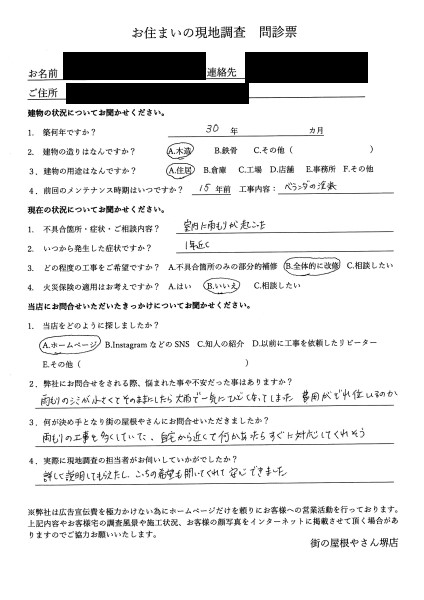 お住まいの現地調査 問診票
お名前 連絡先
ご住所
建物の状況についてお聞かせください。
1. 築何年ですか? 30 年 カ月
2. 建物の造りはなんですか? A.木造 B.鉄骨 C.その他( )
3. 建物の用途はなんですか? A.住居 B.倉庫 C.工場 D.店舗 E.事務所 F.その他
4. 前回のメンテナンス時期はいつですか? 15 年前 工事内容: ベランダの塗装
現在の状況についてお聞かせください。
1. 不具合箇所・症状・ご相談内容? 室内に雨もりが起こった
2. いつから発生した症状ですか? 1年近く
3. どの程度の工事をご希望ですか? A.不具合箇所のみの部分的補修 B.全体的に改修 C.相談したい
4. 火災保険の適用はお考えですか? A.はい B.いいえ C.相談したい
当店にお問合せいただいたきっかけについてお聞かせください。
1. 当店をどのように探しましたか?
A.ホームページ B.Instagram などの SNS C.知人の紹介 D.以前に工事を依頼したリピーター
E.その他( )
2. 弊社にお問合せをされる際、悩まれた事や不安だった事はありますか?
雨もりのシミが小さくてそのままにしたら大雨で一気にひどくなってしまった 費用がどれ位いるのか
3. 何が決め手となり街の屋根やさんにお問合せいただきましたか?
雨もりの工事を多くしていて、自宅から近くて何かあったらすぐに対応してくれそう
4. 実際に現地調査の担当者がお伺いしていかがでしたか?
詳しく説明してもらえたし、こちらの希望も聞いてくれて安心できました
※弊社は広告宣伝費を極力かけない為にホームページだけを頼りにお客様への営業活動を行っております。
上記内容やお客様宅の調査風景や施工状況、お客様の顔写真をインターネットに掲載させて頂く場合があ
りますのでご協力お願いいたします。
街の屋根やさん堺店